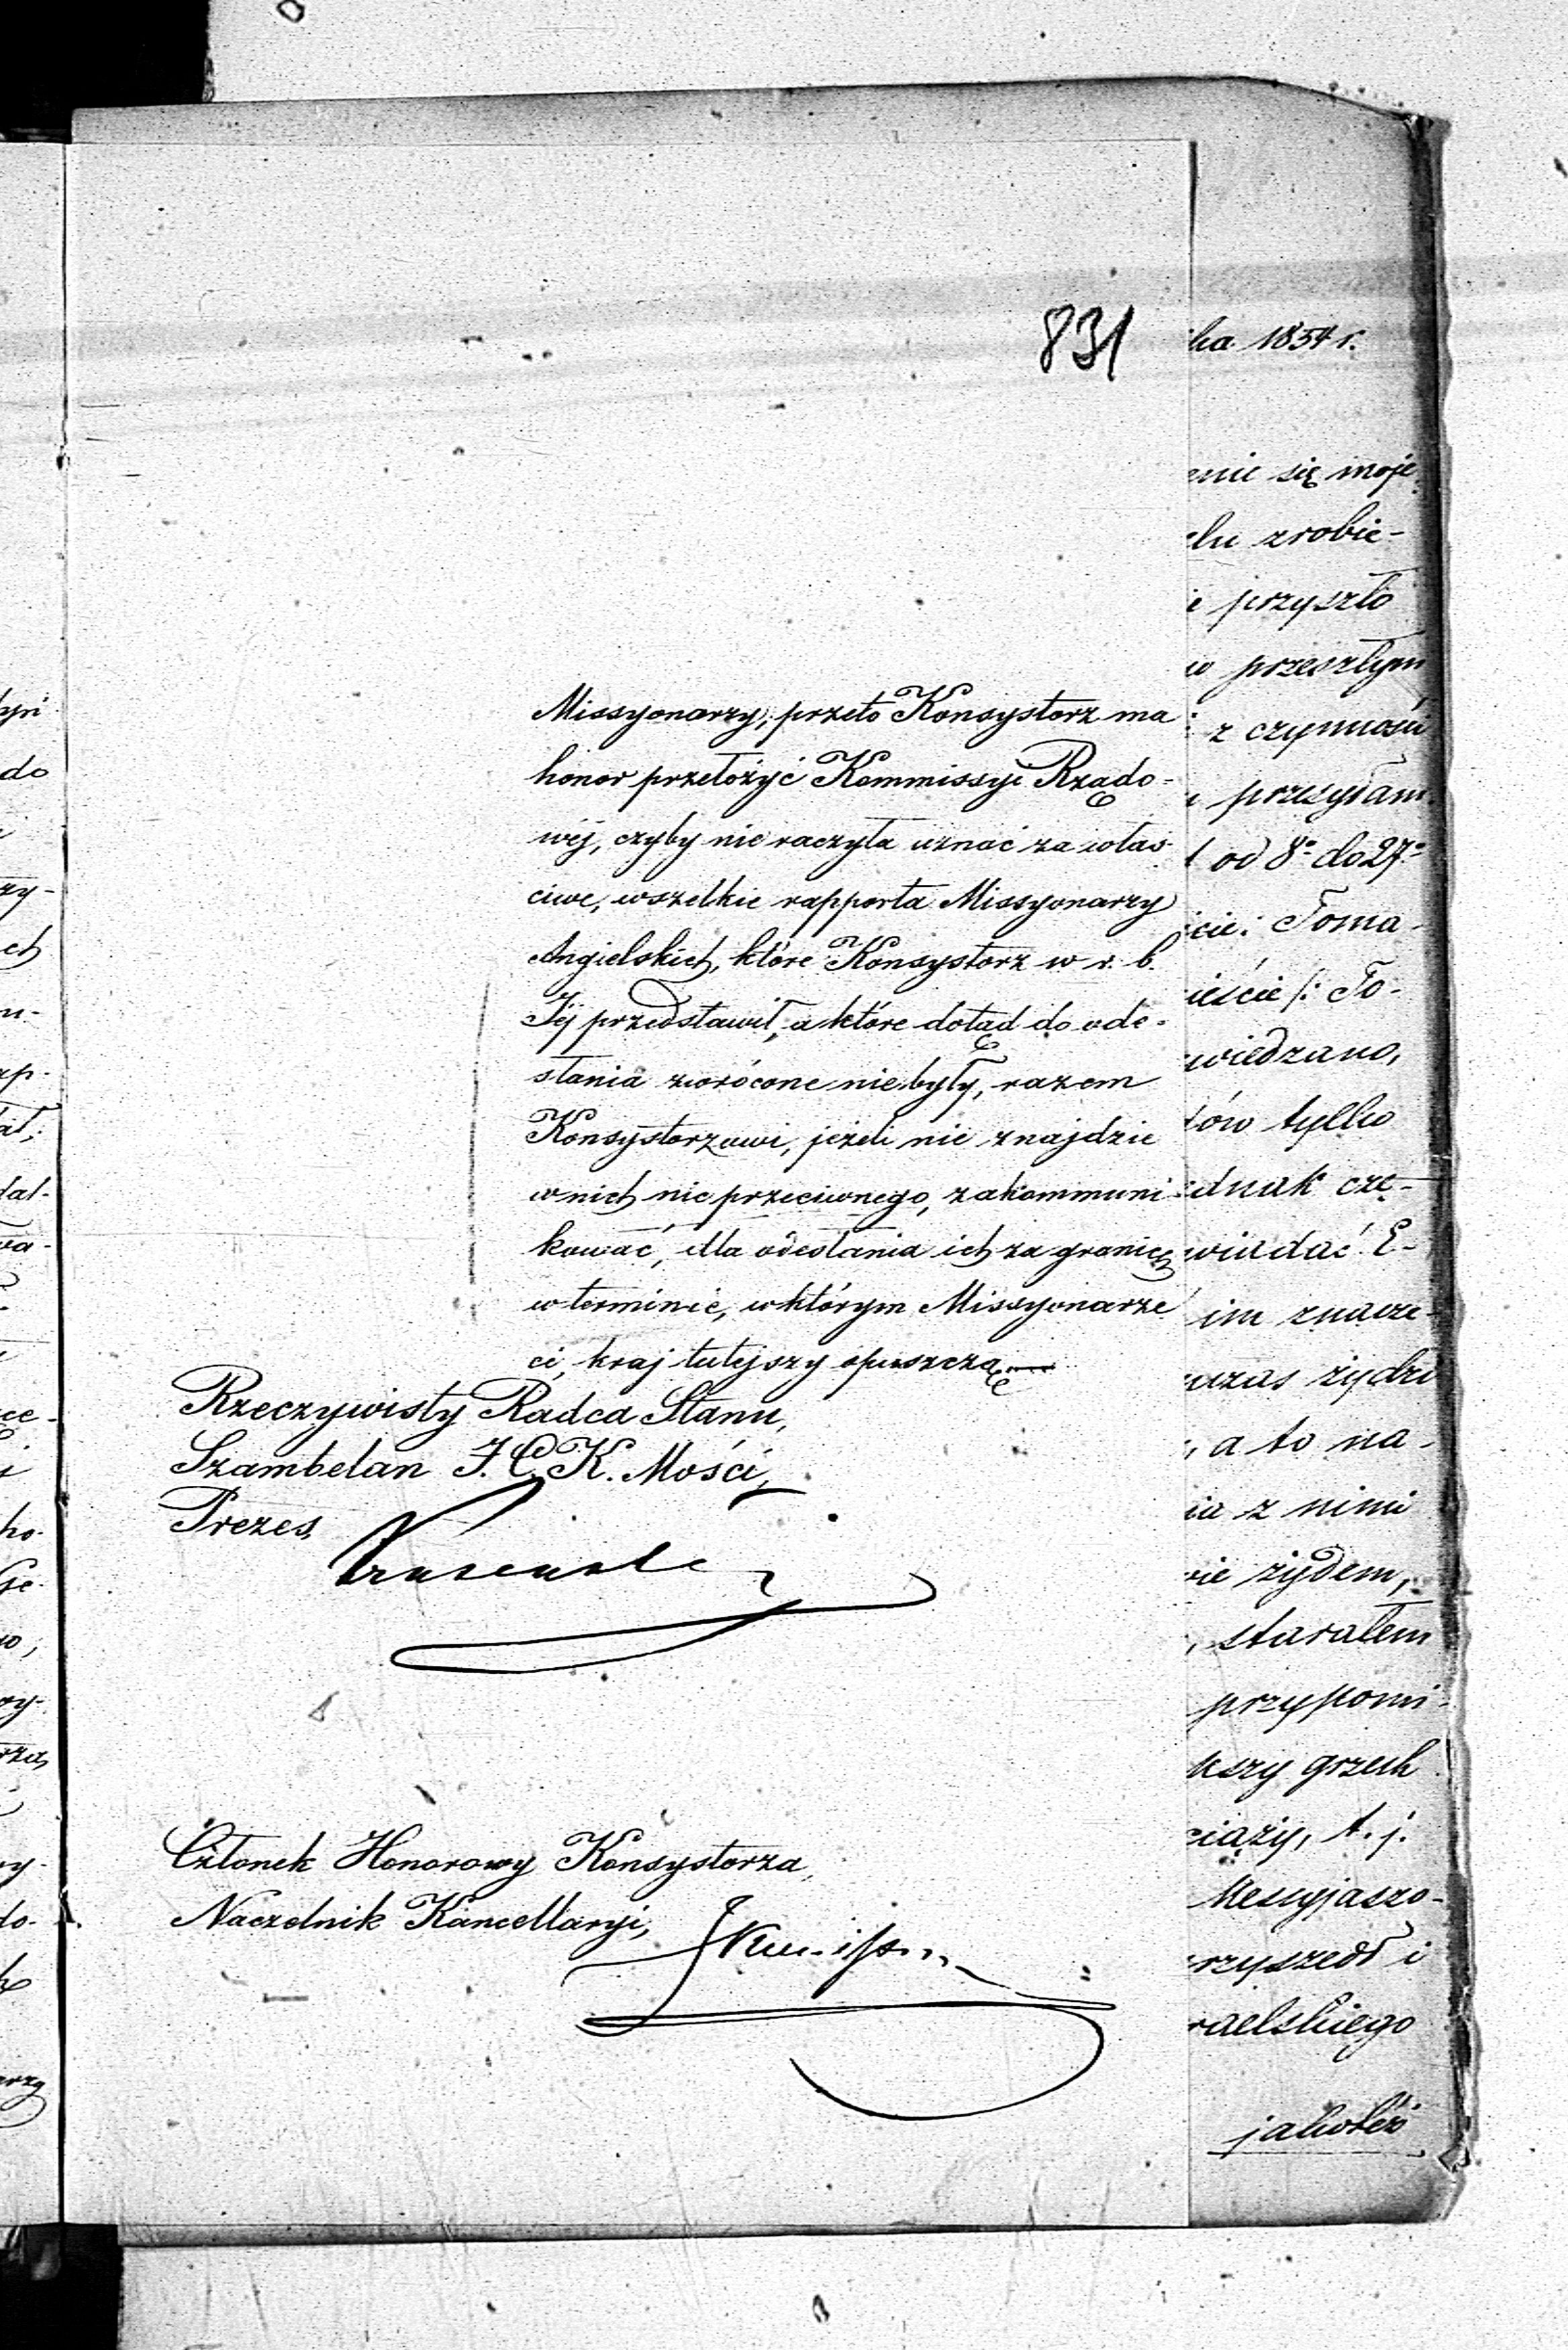 831
Missyonarzy, przeto Konsystorz ma
honor przełożyć Kommissyi Rządo-
wéj, czyby nie raczyła uznać za włas-
ciwe, wszelkie rapporta Missyonarzy
Angielskich, które Konsystorz w r. b.
Jéj przedstawił, a które dotąd do ode-
słania zwrócone nie były, razem
Konsystorzowi, jeżeli nie znajdzie
w nich nic przeciwnego, zakommuni-
kować, dla odesłania ich za granicę
w terminie, w którym Missyonarze
ci, kraj tutejszy opuszczą.—
Rzeczywisty Radca Stanu,
Szambelan J. C. K. Mości,
Prezes,
Członek Honorowy Konsystorza,
Naczelnik Kancellaryi,
ka 1854 r.
enie się moje
elu zrobie-
e przyszło
w przeszłym
z czynności
przesyłam
od 8º do 27º
cie: Toma-
ieście /: To-
wiedzano,
ów tylko
ednak czę-
wiadać E-
im znacze-
czas żydzi
, a to na-
ia z nimi
ie żydem,
, starałem
przypomi-
kszy grzech
ciąży, t. j.
Messyjaszo-
rzyszedł i
raelskiego
jakotéż